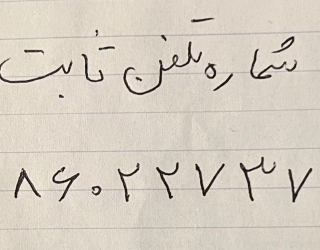 شماره تلفن ثابت
۸۶۰۲۲۷۳۷